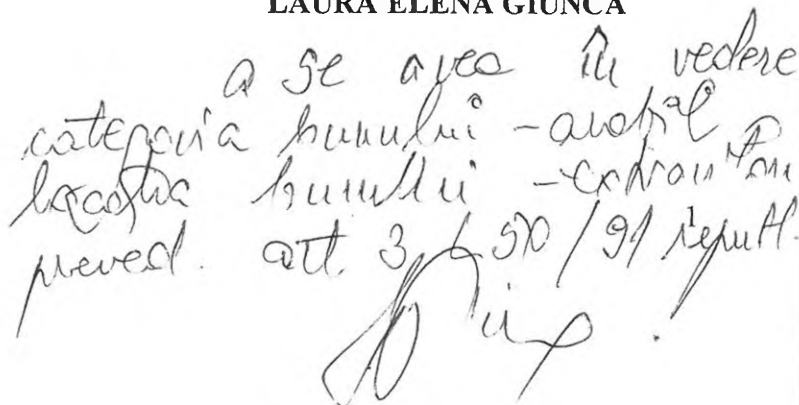 LAURA ELENA GIUNCA
a se avea în vedere
categoria bunului - arabil
locația bunului - extravilan
preved. art. 3 L 50 / 91 republ.